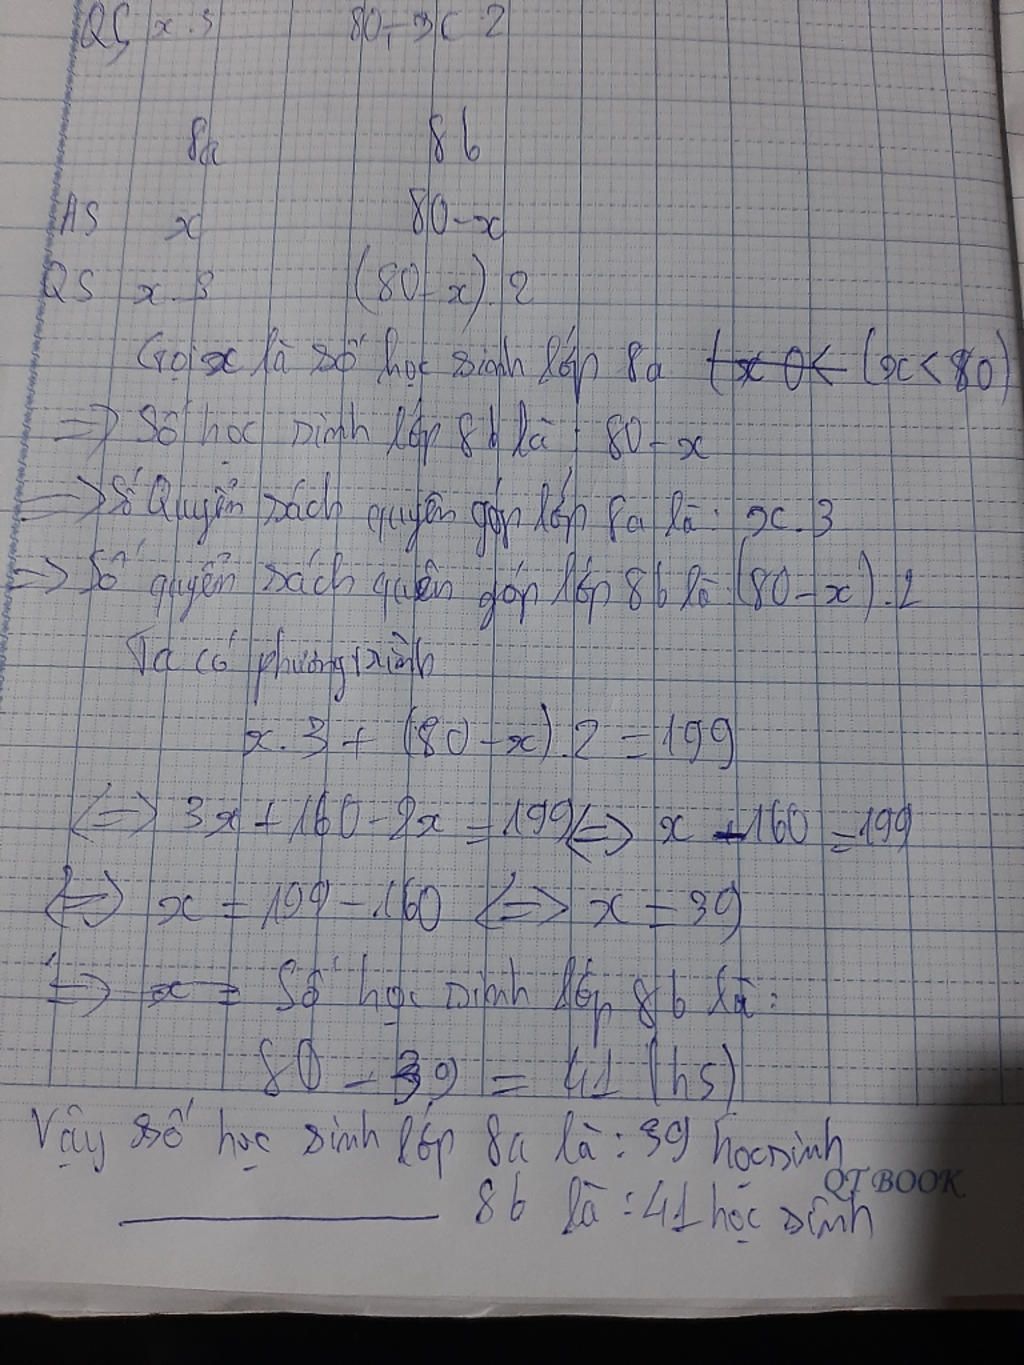 QS x.3 80-x.2
8a 8b
HS x 80-x
QS x.3 (80-x).2
Gọi x là số học sinh lớp 8a (x 0< (x<80)
=> Số học sinh lớp 8b là: 80-x
=> Số Quyển sách quyên góp lớp 8a là: x.3
=> Số quyển sách quyên góp lớp 8b là (80-x).2
Ta có phương trình
x.3 + (80-x).2 = 199
<=> 3x + 160 - 2x = 199 <=> x + 160 = 199
<=> x = 199 - 160 <=> x = 39
=> x = Số học sinh lớp 8b là:
80 - 39 = 41 (hs)
Vậy số học sinh lớp 8a là: 39 học sinh
8b là: 41 học sinh
QTBOOK